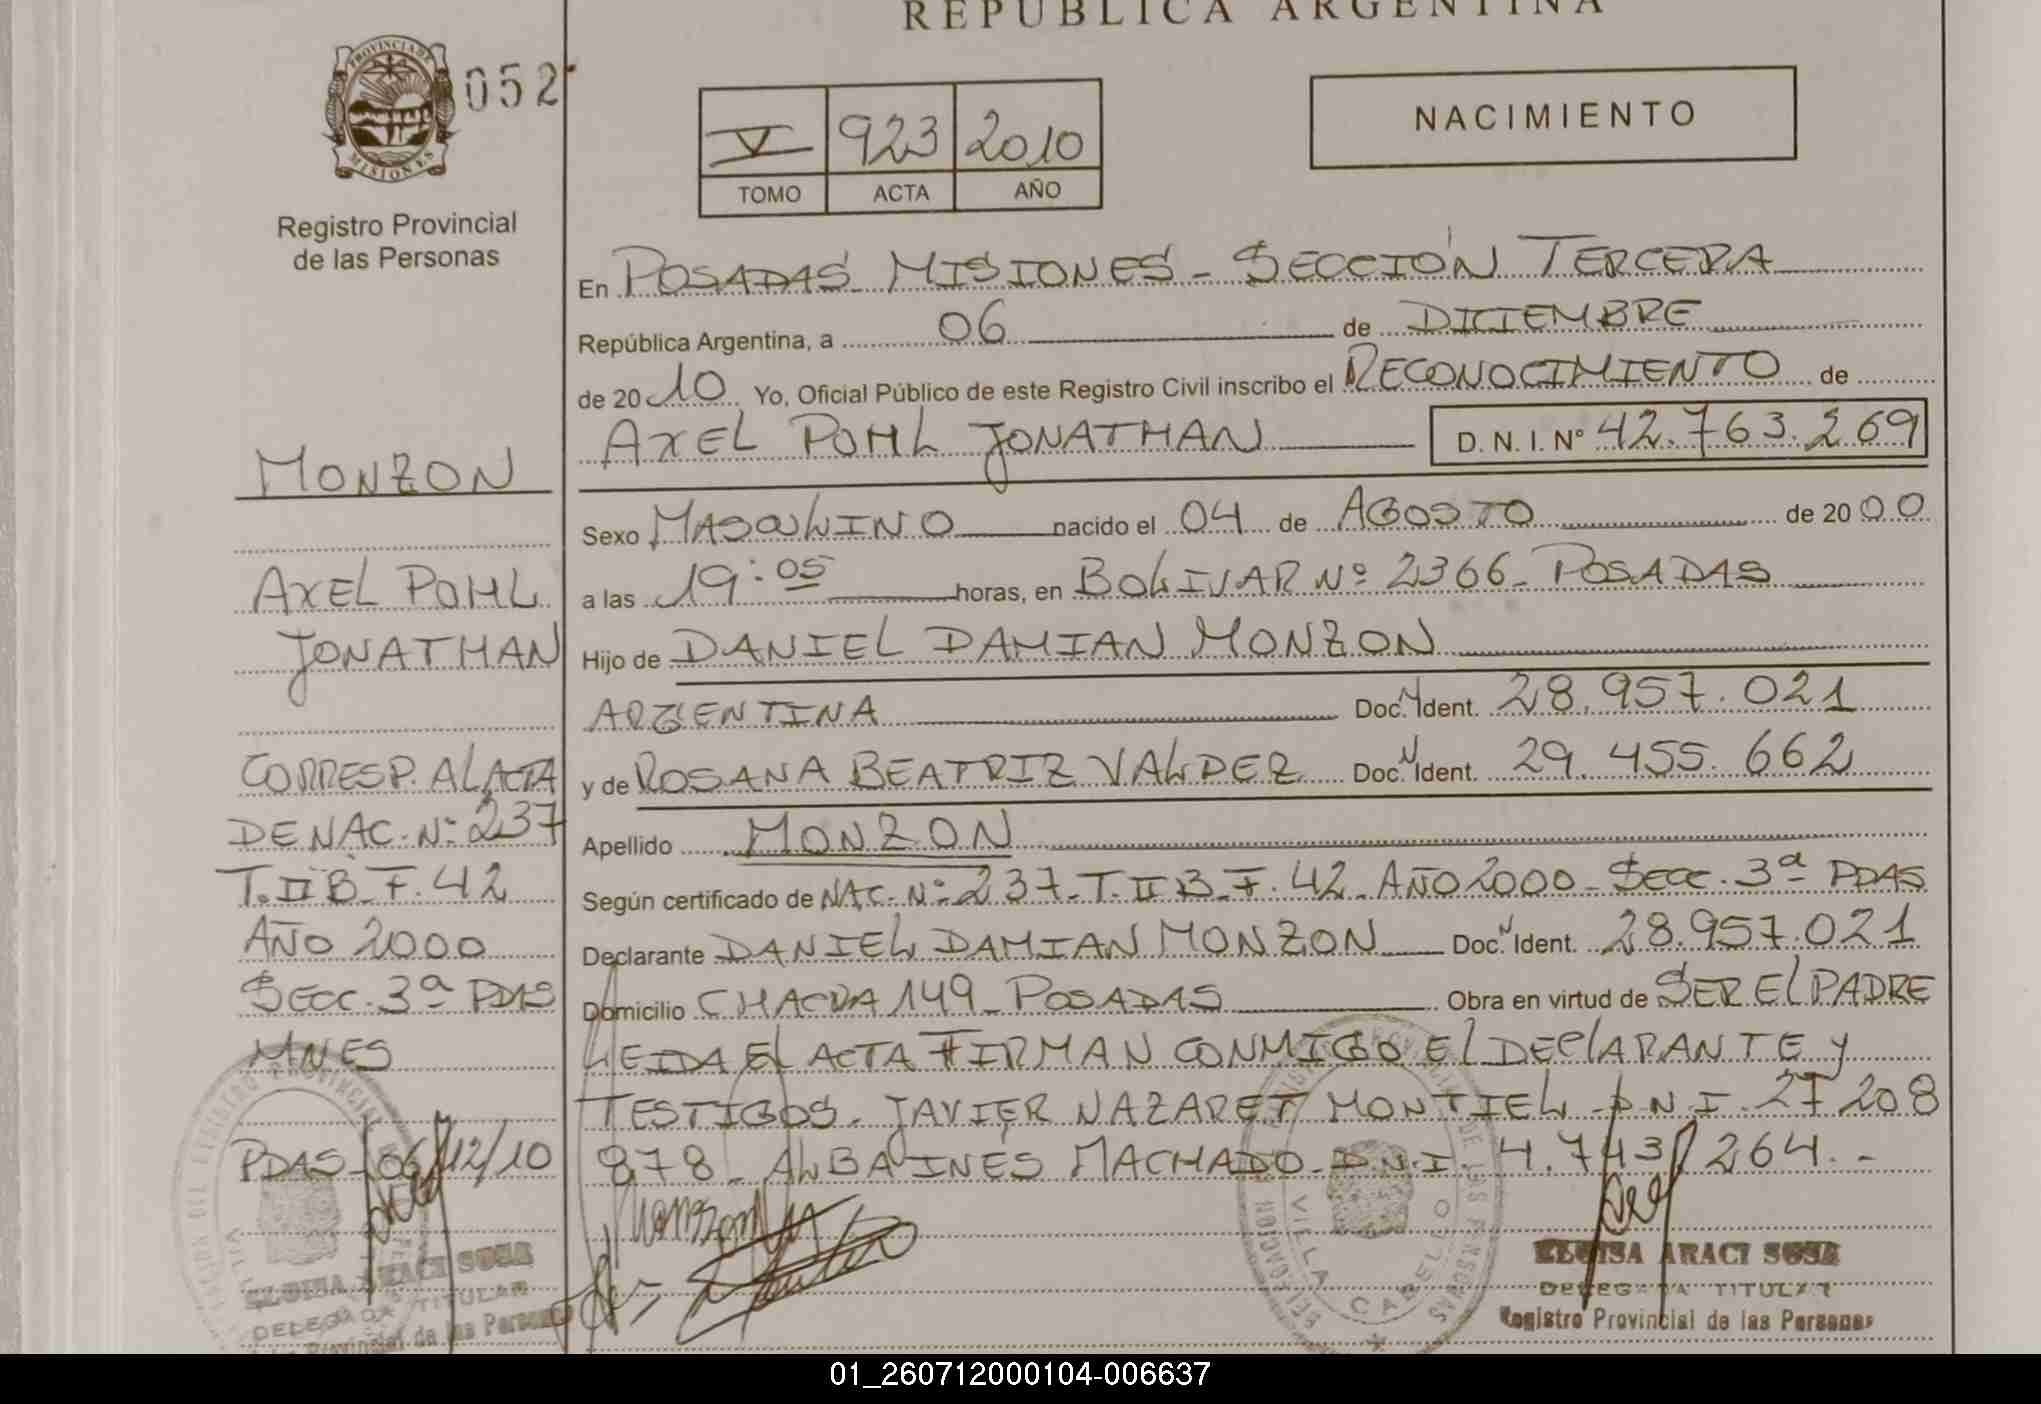 REPUBLICA ARGENTINA
PROVINCIA DE
MISIONES
052
Registro Provincial
de las Personas
V 923 2010
TOMO ACTA AÑO
NACIMIENTO
En POSADAS MISIONES - SECCIÓN TERCERA
República Argentina, a 06 de DICIEMBRE
de 2010 Yo, Oficial Público de este Registro Civil inscribo el RECONOCIMIENTO de
AXEL POHL JONATHAN D. N. I. N° 42.763.269
Sexo MASCULINO nacido el 04 de AGOSTO de 2000
a las 19:05 horas, en BOLIVAR Nº 2366 - POSADAS
Hijo de DANIEL DAMIAN MONZON
ARGENTINA Doc. Ident. 28.957.021
y de ROSANA BEATRIZ VALDEZ Doc. Ident. 29.455.662
Apellido MONZON
Según certificado de NAC. Nº 237 - T. II B - F. 42 - AÑO 2000 - SECC. 3ª PDAS
Declarante DANIEL DAMIAN MONZON Doc. Ident. 28.957.021
Domicilio CHACRA 149 - POSADAS Obra en virtud de SER EL PADRE
LEIDA EL ACTA FIRMAN CONMIGO EL DECLARANTE Y
TESTIGOS - JAVIER NAZARET MONTIEL D.N.I. 27 208
878 - ALBA INES MACHADO - D.N.I. 4.743.264.-
MONZON
AXEL POHL
JONATHAN
CORRESP. AL ACTA
DE NAC. Nº 237
T. II B - F. 42
AÑO 2000
SECC. 3ª PDAS
MNES
PDAS - 06/12/10
ELOISA ARACI SOSA
DELEGADA TITULAR
Registro Provincial de las Personas
VILLA CABELLO
ELOISA ARACI SOSA
DELEGADA TITULAR
Provincial de las Personas
01_260712000104-006637